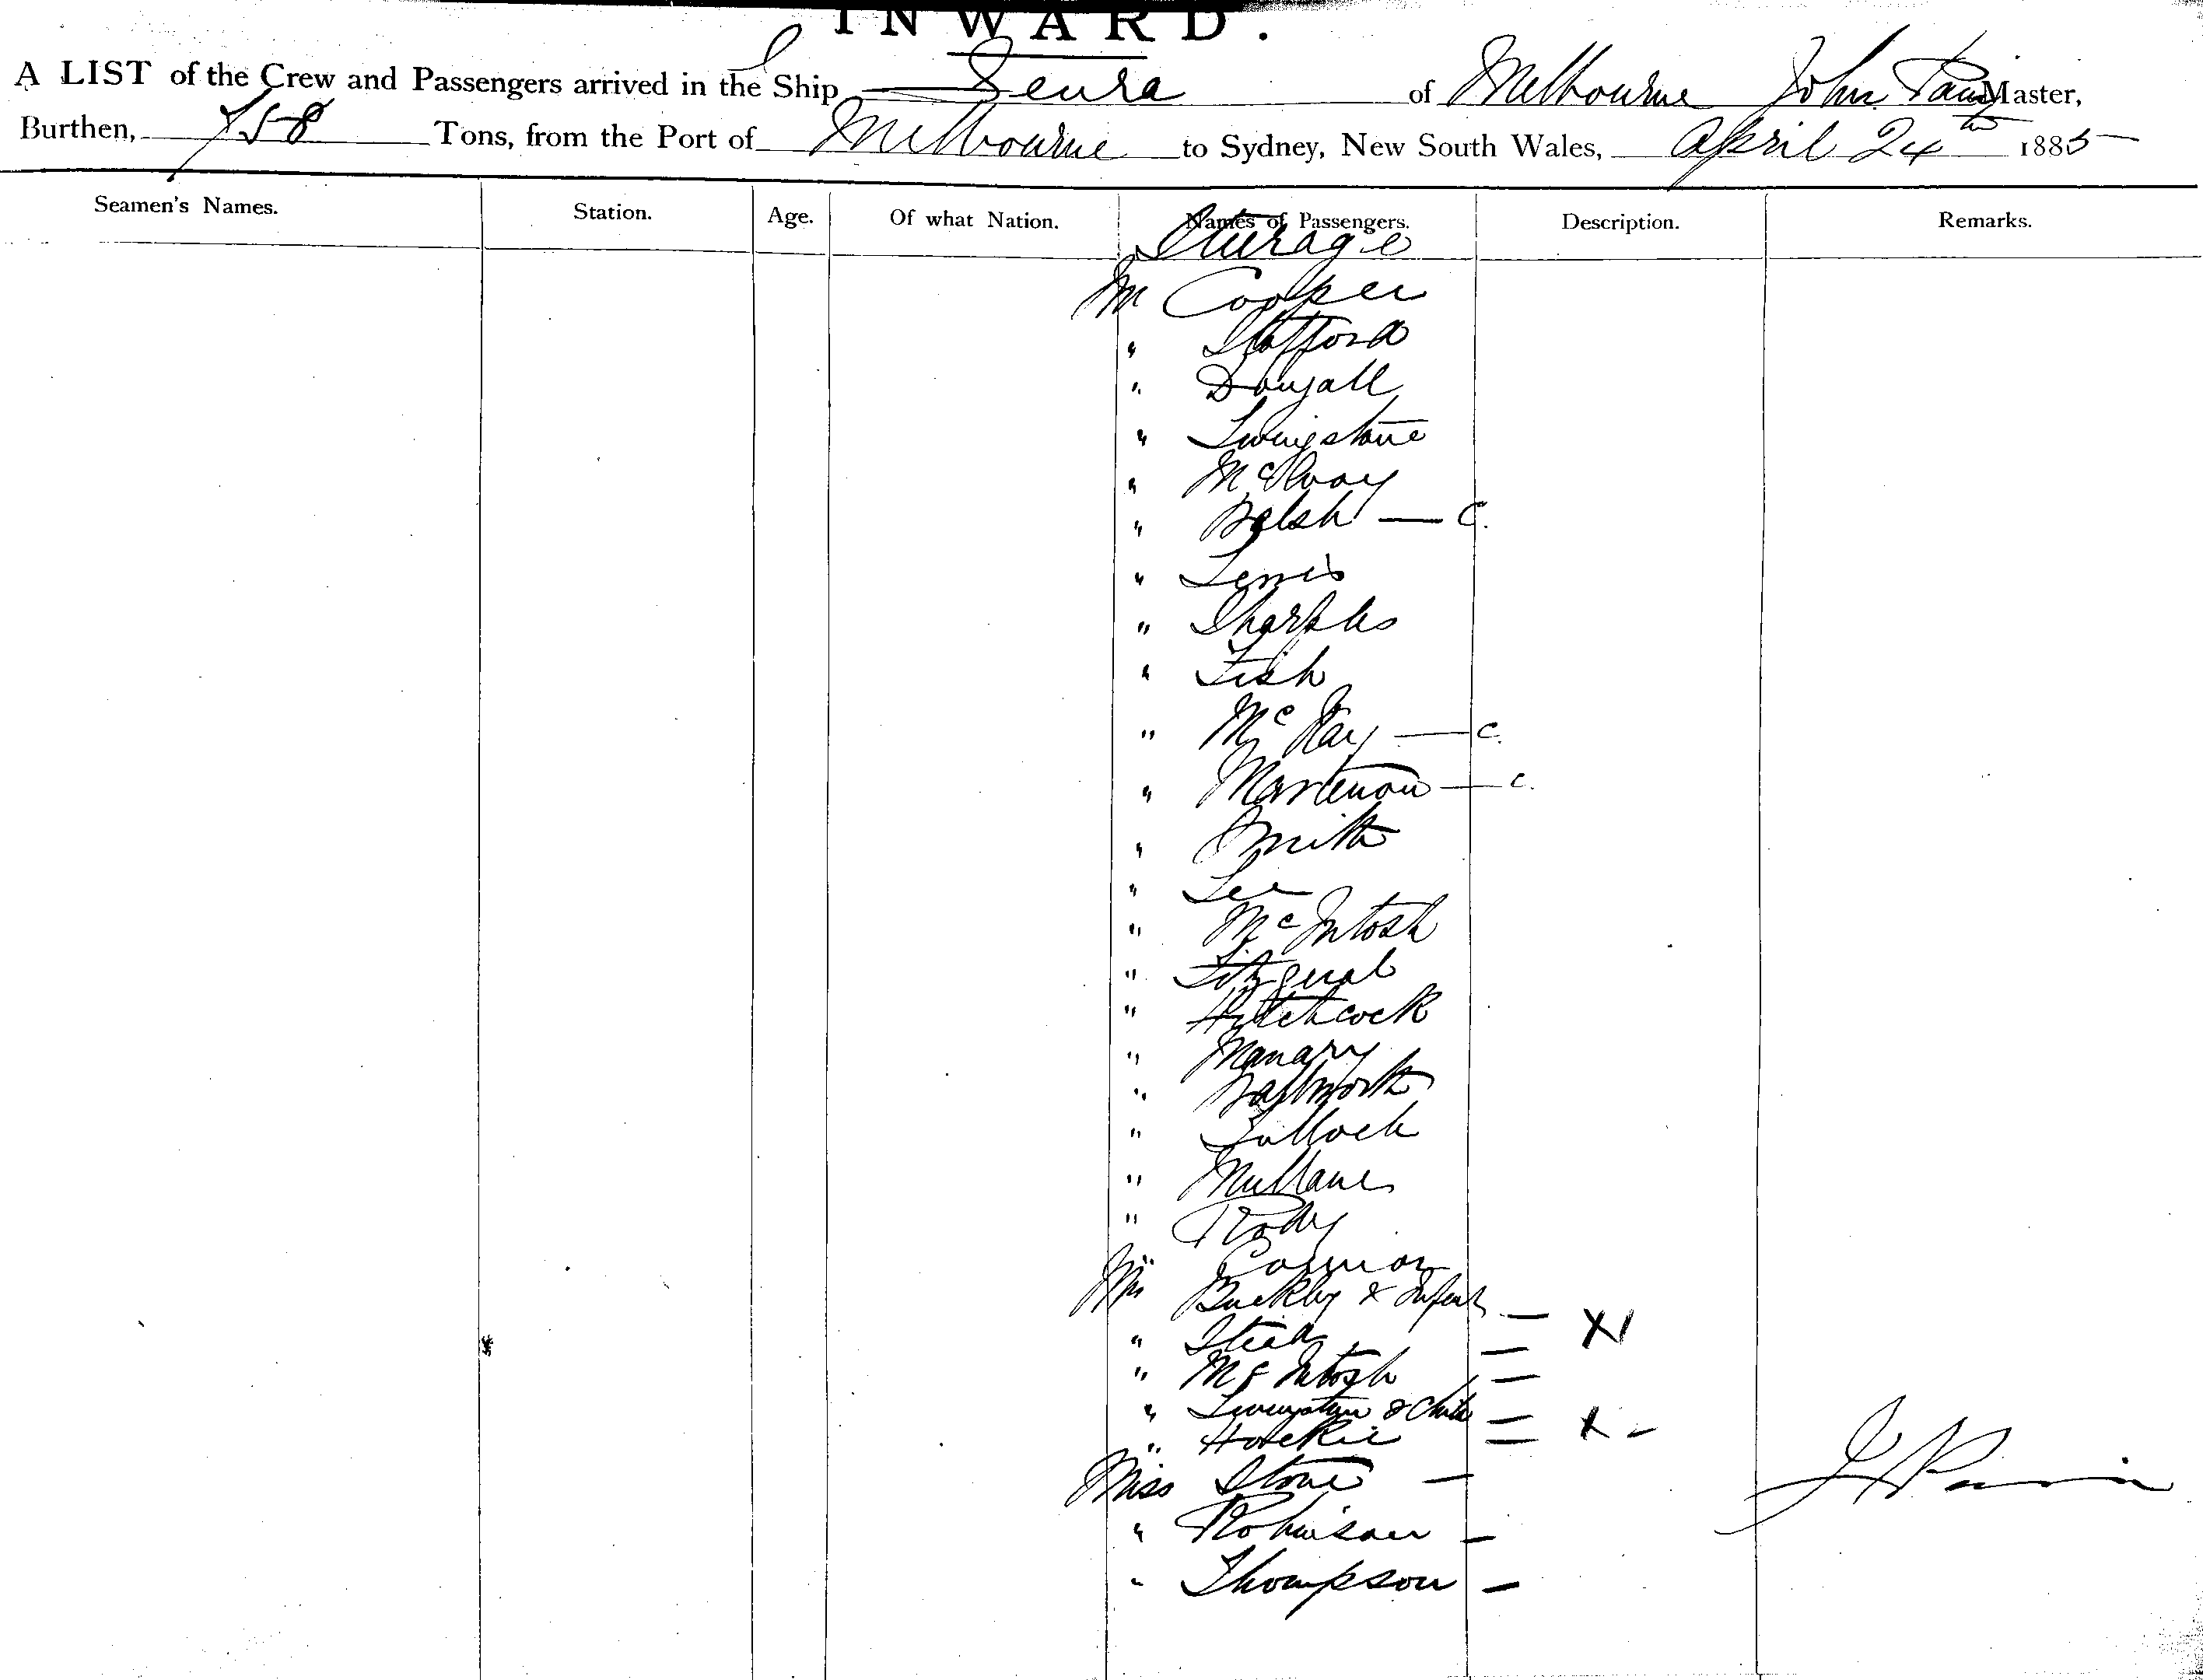 INWARD.
A LIST of the Crew and Passengers arrived in the Ship Seura of Melbourne John Master,
Burthen, 758 Tons, from the Port of Melbourne to Sydney, New South Wales, April 24th 1885
Seamen's Names. Station. Age. Of what Nation. Names of Passengers. Description. Remarks.
Sturage
Mr Cooper
" Stafford
" Dougall
" Livingstone
" McIlvay
" Walsh — C.
" Lewis
" Sharples
" Fish
" McKay — C.
" — C.
" Smith
" Lee
" McIntosh
" Fitzgerald
" Hitchcock
" Manary
"
" Tulloch
" Mullane
" Roby
"
Mrs Buckley & Infant — X1
" Stead —
" McIntosh —
" Livingstone & Child — X -
" Hockie —
Miss Stone —
" Robinson —
" Thompson —